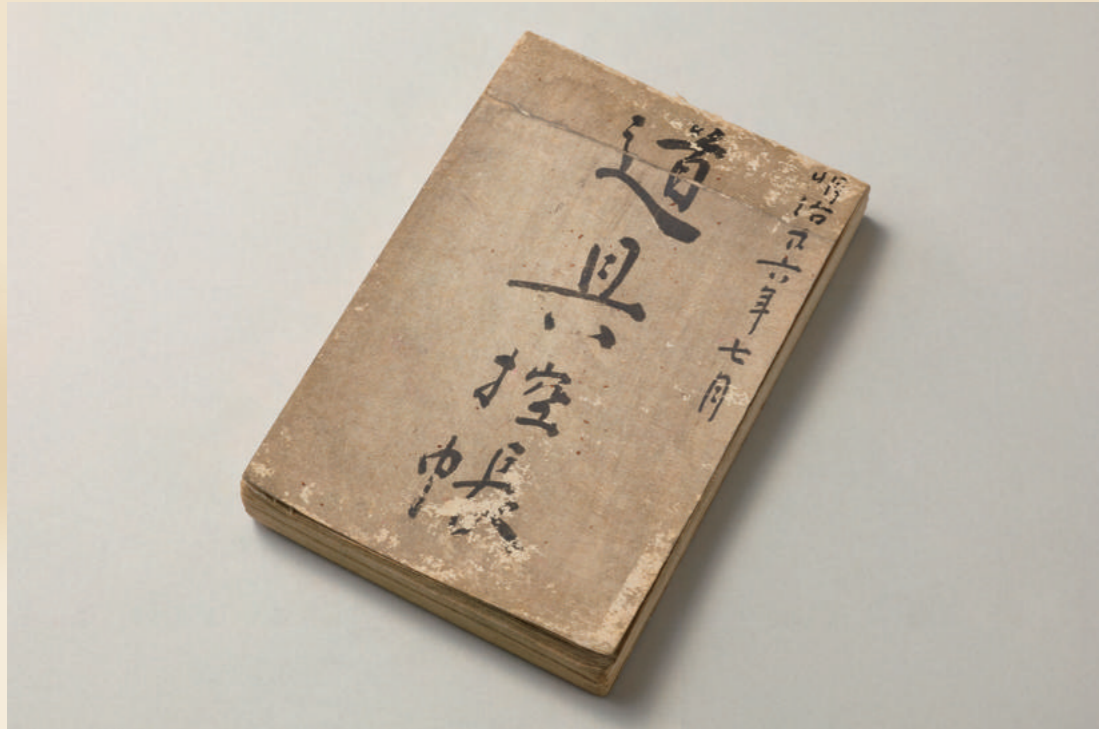 明治 六年七月
道具控帳